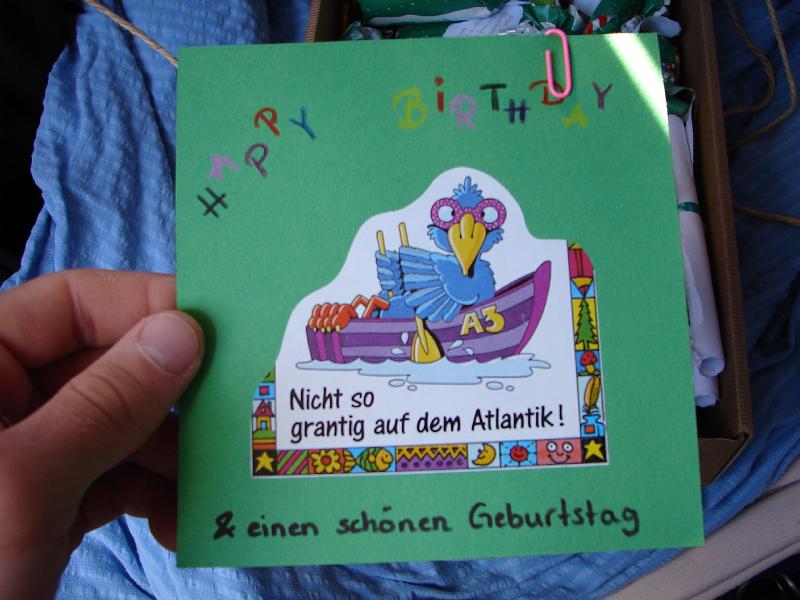 HAPPY BiRTHDAY
A3
Nicht so
grantig auf dem Atlantik!
& einen schönen Geburtstag